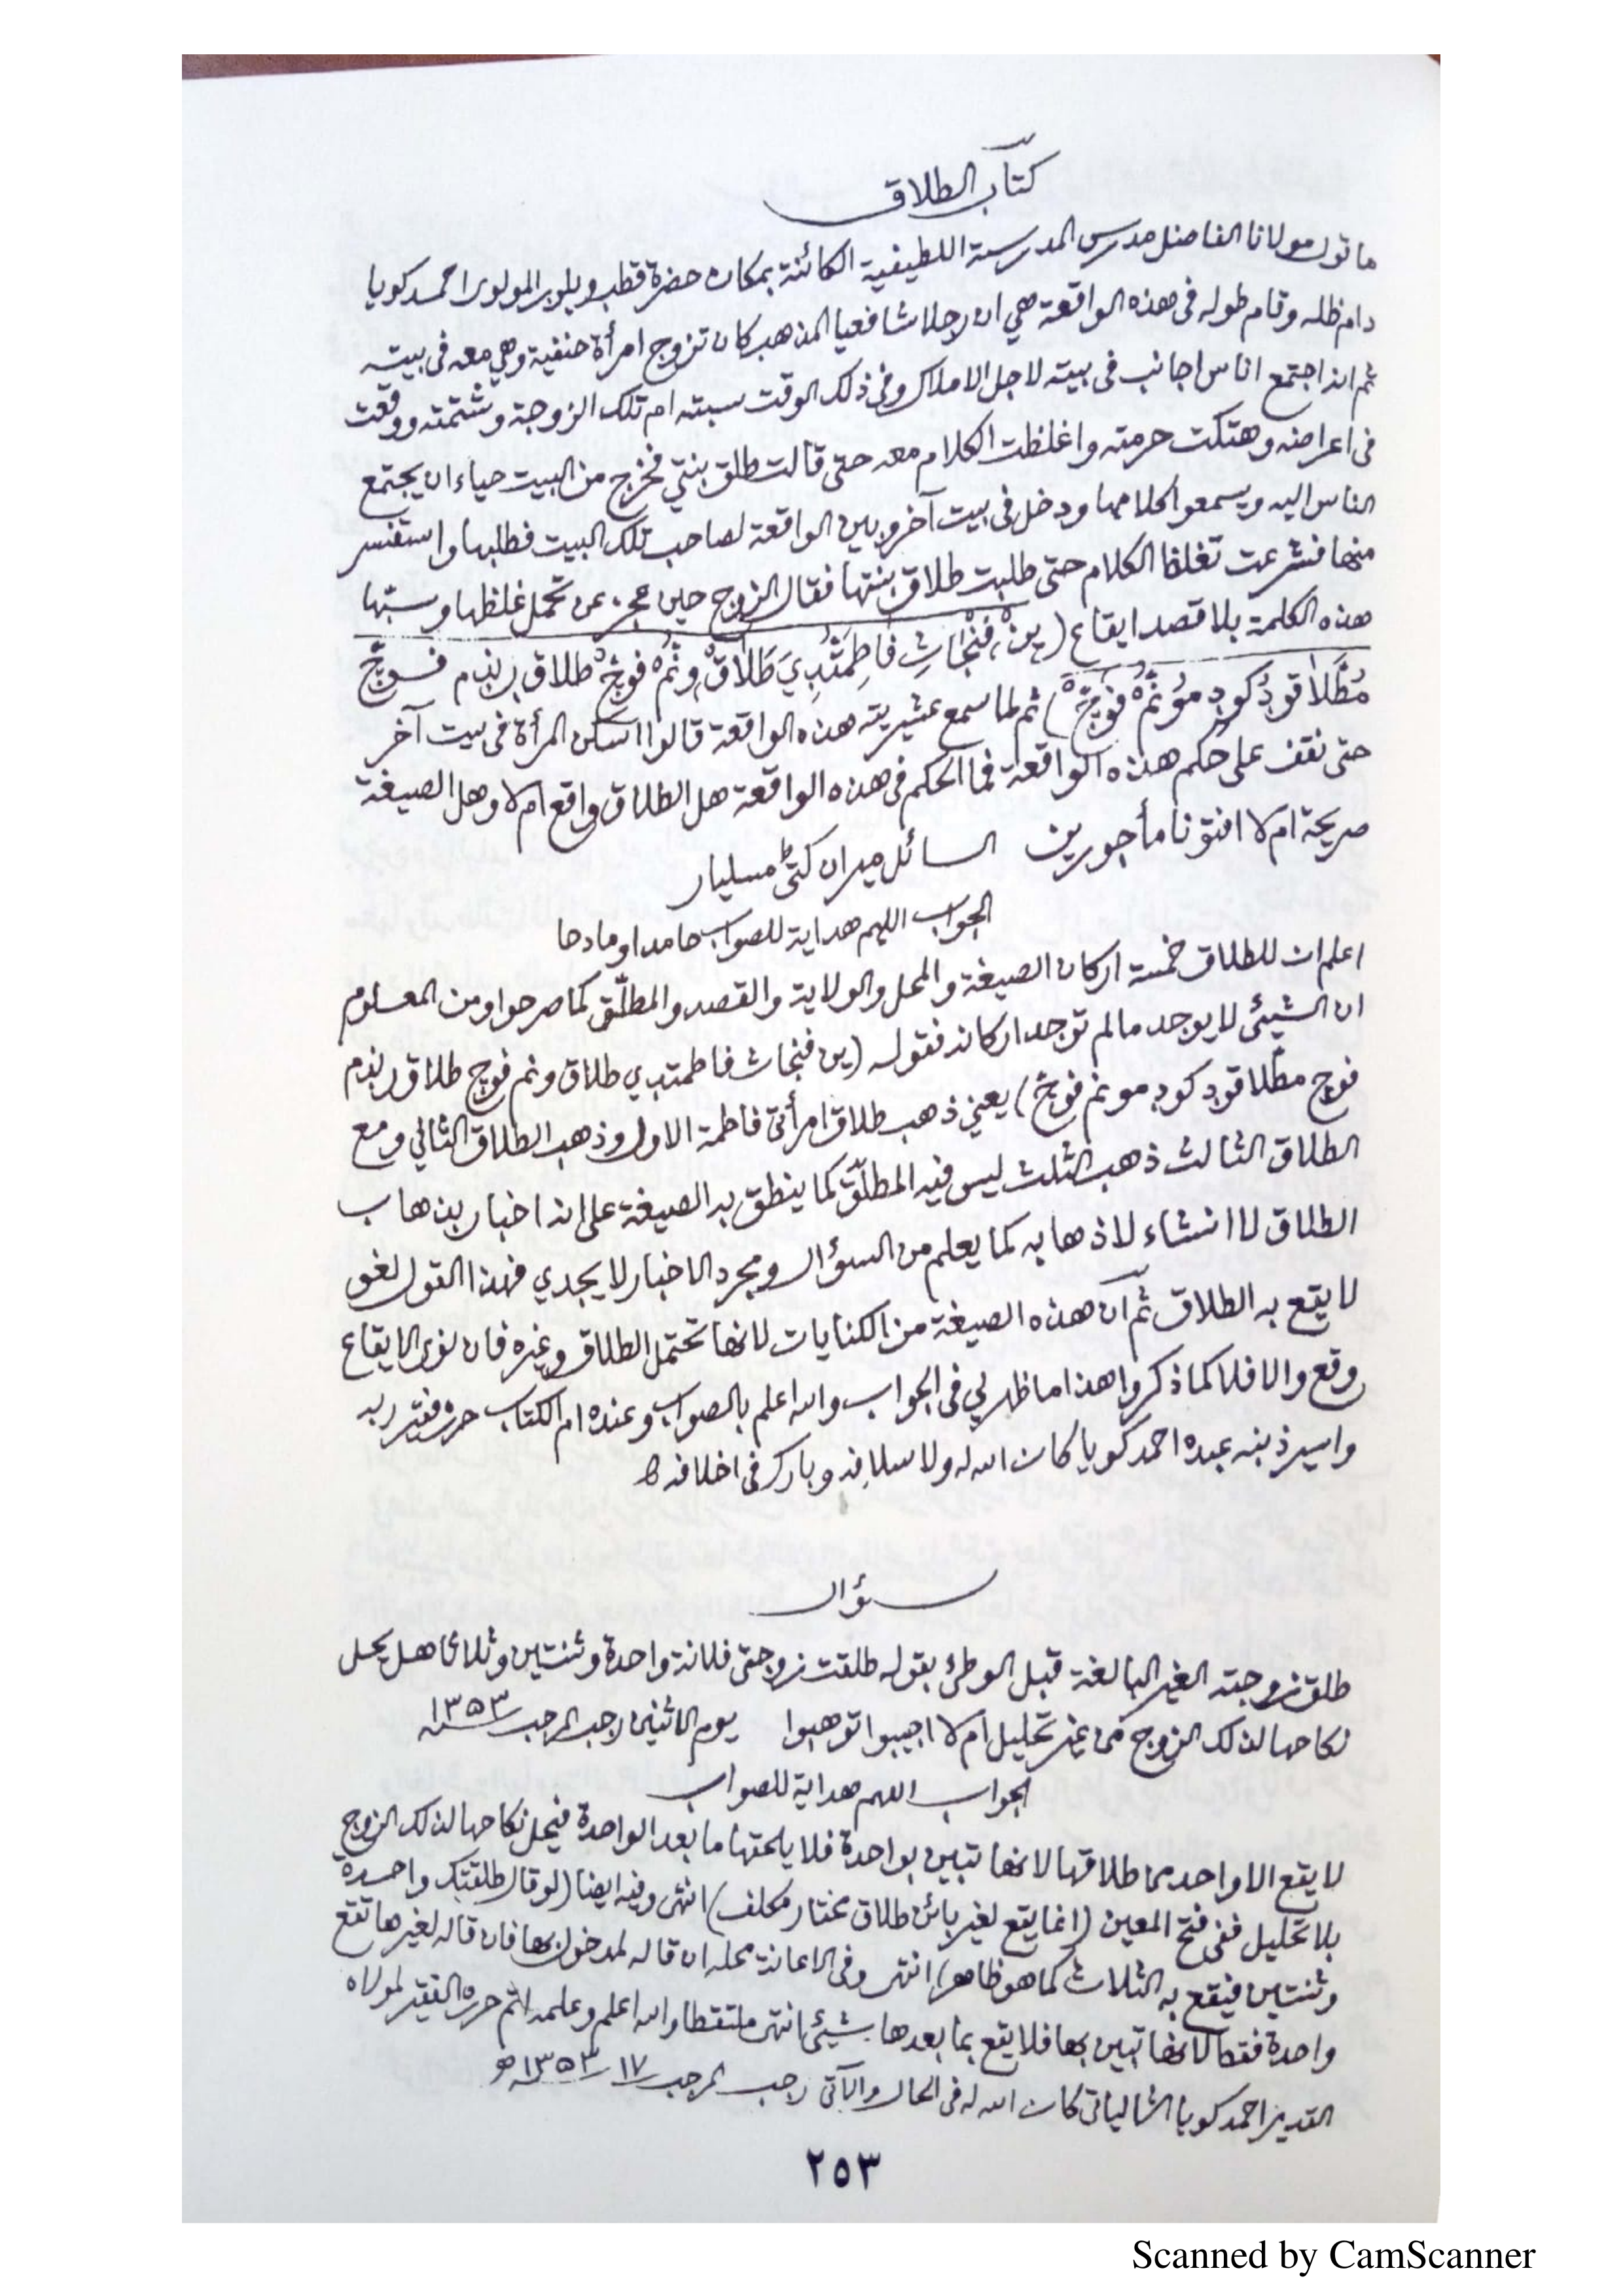 كتاب الطلاق
ما قول مولانا الفاضل مدرس المدرسة اللطيفية الكائنة بمكان حضرة قطب ويلور المولوى احمد كويا
دام ظله وقام طوله فى هذه الواقعة هي ان رجلا شافعيا المذهب كان تزوج امرأة حنفية وهي معه فى بيته
ثم انه اجتمع اناس اجانب فى بيته لاجل الاملاك وفى ذلك الوقت سبته ام تلك الزوجة وشتمته ووقعت
فى اعراضه وهتكت حرمته واغلظت الكلام معه حتى قالت طلق بنتي فخرج من البيت حياء ان يجتمع
الناس اليه ويسمعوا كلامها ودخل فى بيت آخر وبين الواقعة لصاحب تلك البيت فطلبها واستفسر
منها فشرعت تغلظ الكلام حتى طلبت طلاق بنتها فقال الزوج حين عجز عن تحمل غلظها وسبها
هذه الكلمة بلا قصد ايقاع (ين فنجات فاطمتدي طلاق ونم فوج طلاق رنذم فوج
مطلاقود كود مونم فوج) ثم لما سمع عشيرته هذه الواقعة قالوا اسكن المرأة فى بيت آخر
حتى نقف على حكم هذه الواقعة فما الحكم فى هذه الواقعة هل الطلاق واقع ام لا وهل الصيغة
صريحة ام لا افتونا مأجورين السائل ميران كتى مسليار
الجواب اللهم هداية للصواب حامدا ومادحا
اعلم ان للطلاق خمسة اركان الصيغة والمحل والولاية والقصد والمطلّق كما صرحوا ومن المعلوم
ان الشيئ لا يوجد مالم توجد اركانه فقوله (ين فنجات فاطمتدي طلاق ونم فوج طلاق رنذم
فوج مطلاقود كود مونم فوج) يعني ذهب طلاق امرأتى فاطمة الاول وذهب الطلاق الثاني ومع
الطلاق الثالث ذهب الثلث ليس فيه المطلّق كما ينطق به الصيغة على انه اخبار بذهاب
الطلاق لا انشاء لاذهابه كما يعلم من السؤال ومجرد الاخبار لا يجدي فهذا القول لغو
لا يقع به الطلاق ثم ان هذه الصيغة من الكنايات لانها تحتمل الطلاق وغيره فان نوى الايقاع
وقع والا فلا كما ذكروا هذا ما ظهر لي فى الجواب والله اعلم بالصواب وعنده ام الكتاب حرره فقير ربه
واسير ذنبه عبده احمد كويا كان الله له ولاسلافه وبارك فى اخلافه
سؤال
طلق زوجته الغير البالغة قبل الوطئ بقوله طلقت زوجتى فلانة واحدة وثنتين وثلاثا هل يحل
نكاحها لذلك الزوج من غير تحليل ام لا اجيبوا توهبوا يوم الاثنين رجب المرجب ١٣٥٣
الجواب اللهم هداية للصواب
لا يقع الا واحد من طلاقها لانها تبين بواحدة فلا يلحقها ما بعد الواحدة فيحل نكاحها لذلك الزوج
بلا تحليل ففى فتح المعين (انما يقع لغير بائن طلاق مختار مكلف) انتهى وفيه ايضا (لو قال طلقتك واحدة
وثنتين فيقع به الثلاث كما هو ظاهر) انتهى وفى الاعانة محله ان قاله لمدخول بها فان قاله لغيرها تقع
واحدة فقط لانها تبين بها فلا يقع بما بعدها شيئ انتهى ملتقطا والله اعلم وعلمه اتم حرره الفقير لمولاه
القدير احمد كويا الشالياتى كان الله له فى الحال والآتى رجب المرجب ١٧ ١٣٥٣ هـ
٢٥٣
Scanned by CamScanner